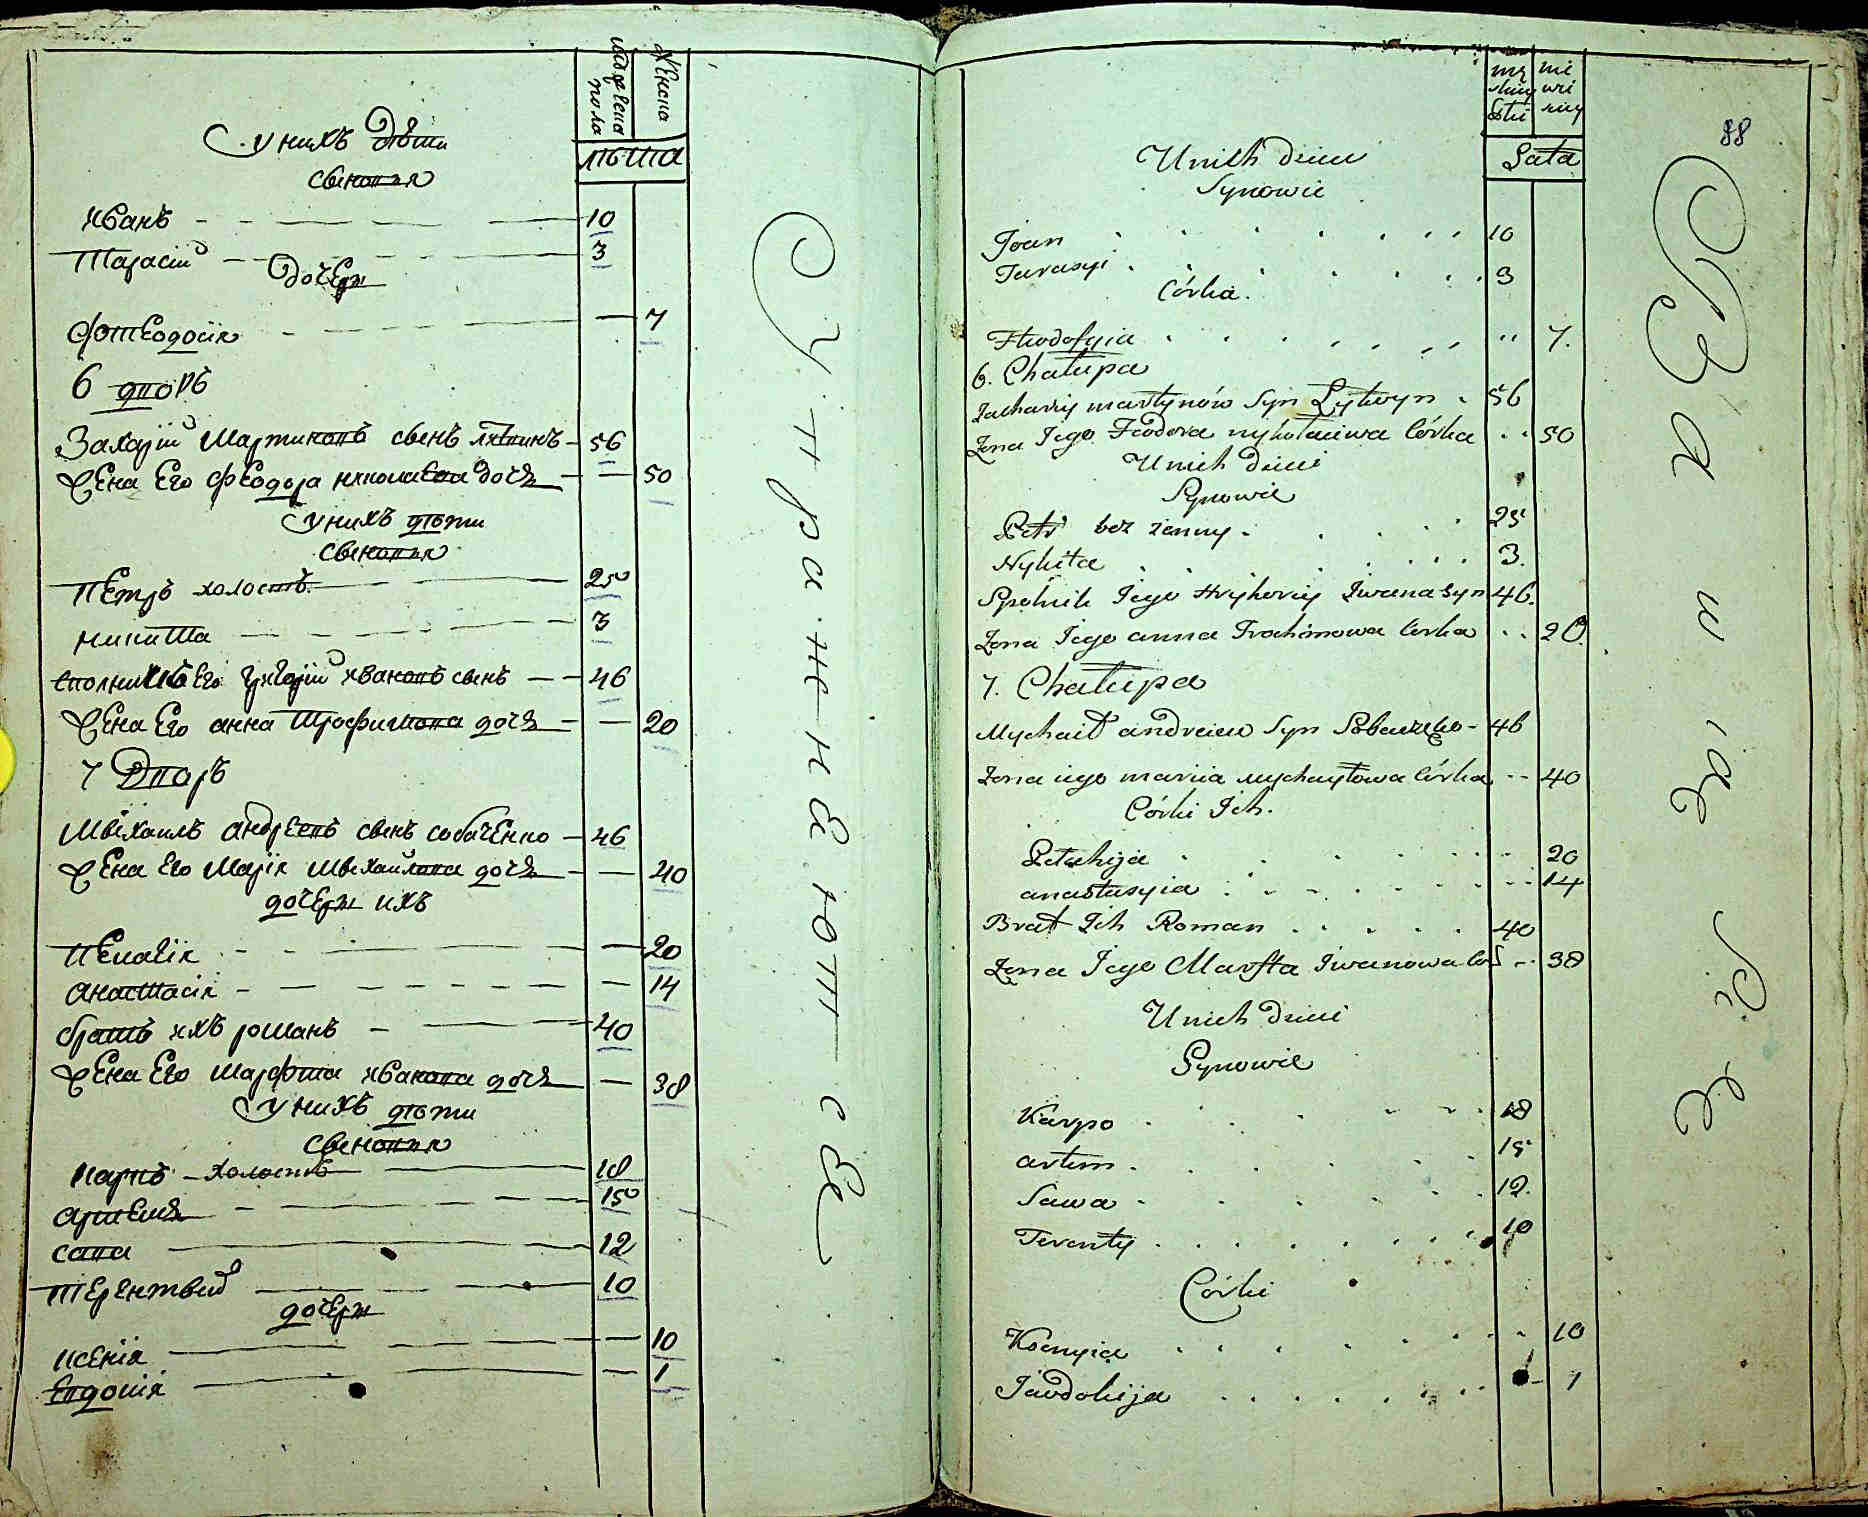 мужеска пола
Женска
лѣта
У нихъ дѣти
синовья
Иванъ 10
Тарасій 3
дочери
Фтеодосія 7
6 дворъ
Захарій Мартиновъ синъ 56
Жена Его Феодора николаева дочъ 50
У нихъ дѣти
синовья
Петръ холостъ 25
никита 3
Его Григорій Ивановъ синъ 46
Жена Его анна Трофимова дочъ 20
7 Дворъ
Михаилъ андреевъ синъ собаченко 46
Жена Его Марія Михайлова дочъ 40
дочери ихъ
Пелагія 20
анастасія 14
братъ ихъ романъ 40
Жена Его марфта Иванова дочъ 38
У нихъ дѣти
синовья
карпъ холостъ 18
артемъ 15
сава 12
терентвий 10
дочери
ксенія 10
Евдокія 1
88
Lata
U nich dzieci
Synowie
Joan 10
Tarasyi 3
Córka.
Fteodosyia 7.
6. Chałupa
Zachariy martynów Syn Lytwyn 56
Zona Jego Feodora nykołaiewa Córka 50
U nich dzieci
Synowie
Petr bez żenny 25
Nykita 3.
Spolnik Jego Hryhoriy Iwana syn 46.
Zona Jego anna Trochimowa Córka 20.
7. Chałupa
Mychaił andreiew Syn Sobaczenko 46
Zona iego mariia mychayłowa Córka 40
Córki Ich.
Pelahija 20
anastasyia 14
Brat Ich Roman 40
Zona Jego Marfta Iwanowa 38
U nich dzieci
Synowie
Karpo 18
artem 15
Sawa 12.
Terenty 10
Córki
Ksenyia 10
Jawdokija 1